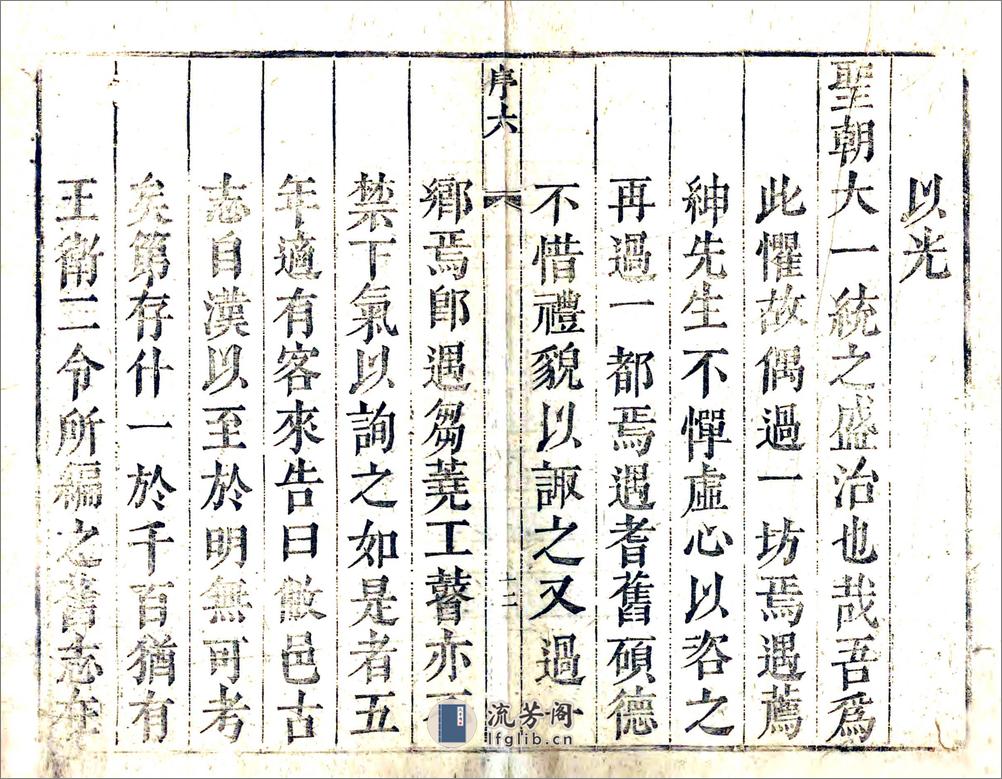 以光
聖朝大一統之盛治也哉吾爲
此懼故偶過一坊焉遇薦
紳先生不憚虛心以咨之
再過一都焉遇耆舊碩德
不惜禮貌以諏之又過
序六
十二
鄉焉卽遇芻蕘工瞽亦
禁下氣以詢之如是者五
年適有客來告曰敝邑古
志自漢以至於明無可考
矣第存什一於千百猶有
王衛二令所編之舊志在
流芳阁
lfglib.cn